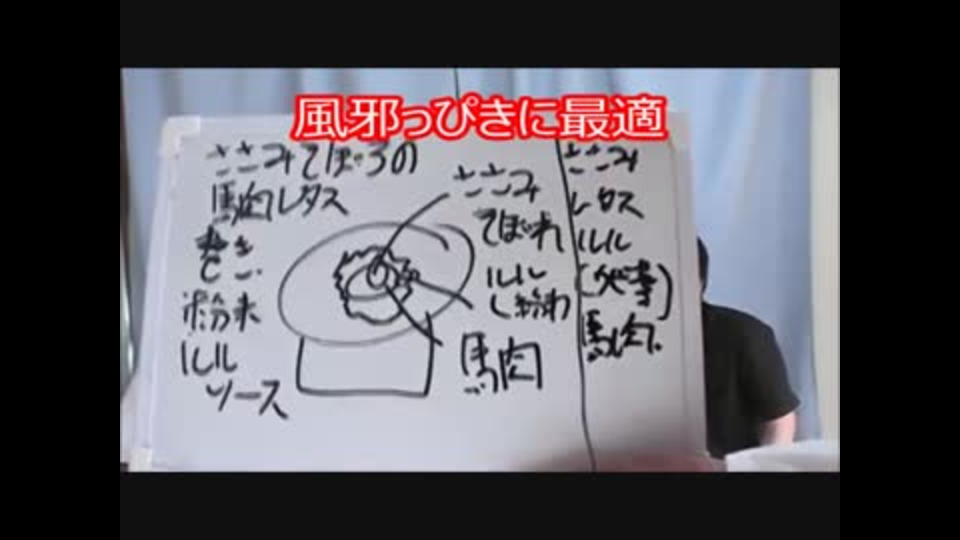 風邪っぴきに最適
ささみでぼろの
馬肉レタス
巻き
粉末
ルル
ソース
ささみ
でぼれ
ルル
粉わ
馬肉
ささみ
レタス
ルル
馬肉